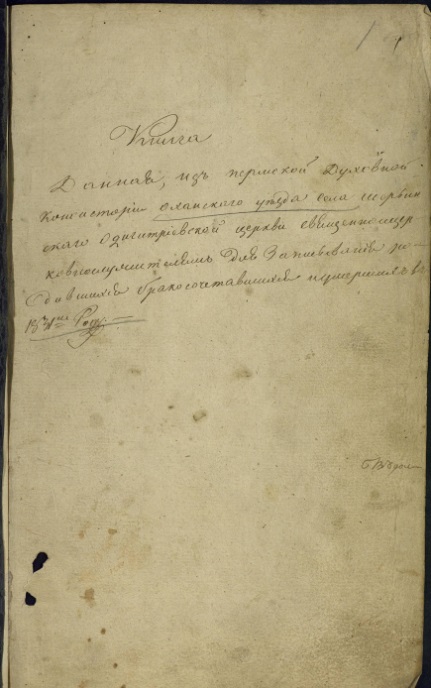 Книга
Данная, изъ пермской Духовной
Консисторіи Оханскаго уѣзда села
скаго Одигитріевской церкви священноцер
ковнослужителямъ Для Записыванія ро
дившихся бракосочетавшихся и умершихъ въ
Году